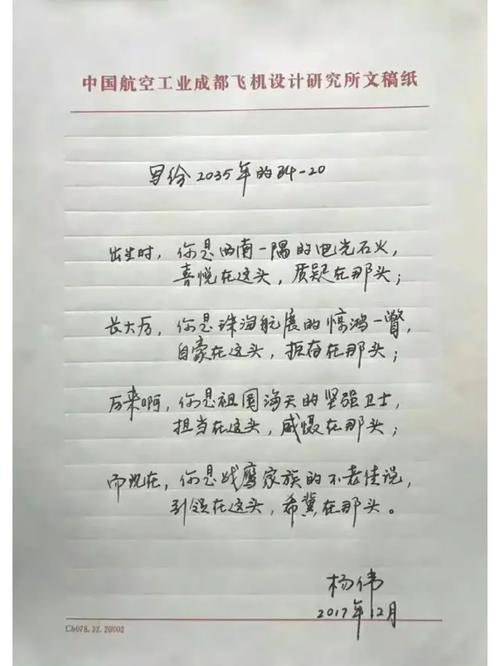 中国航空工业成都飞机设计研究所文稿纸
写给2035年的歼-20
出生时，你是西南一隅的电光石火，
喜悦在这头，质疑在那头；
长大后，你是珠海航展的惊鸿一瞥，
自豪在这头，振奋在那头；
后来啊，你是祖国海天的坚强卫士，
担当在这头，威慑在那头；
而现在，你是战鹰家族的不老传说，
引领在这头，希冀在那头。
杨伟
2017年12月
Ch078.JZ.20002